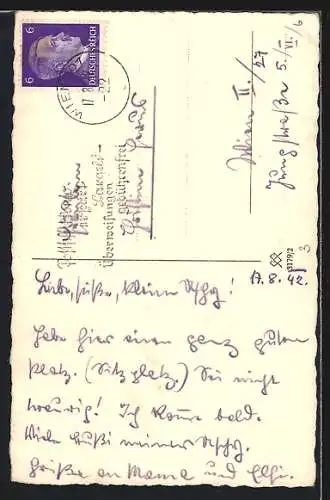 6 6
DEUTSCHES REICH
WIEN
17.8.
-22
Postsparkassen
Bargeld-
Überweisungen
gebührenfrei
Wien II./27
Jungstraße 5./
VI./6
3179/2
3
17.8.42.
Liebe, süße, kleine
Habe hier einen ganz guten
Platz. (Sitzplatz.) Sei nicht
traurig! Ich komme bald.
Viele Bußi meiner
Grüße an Mama und